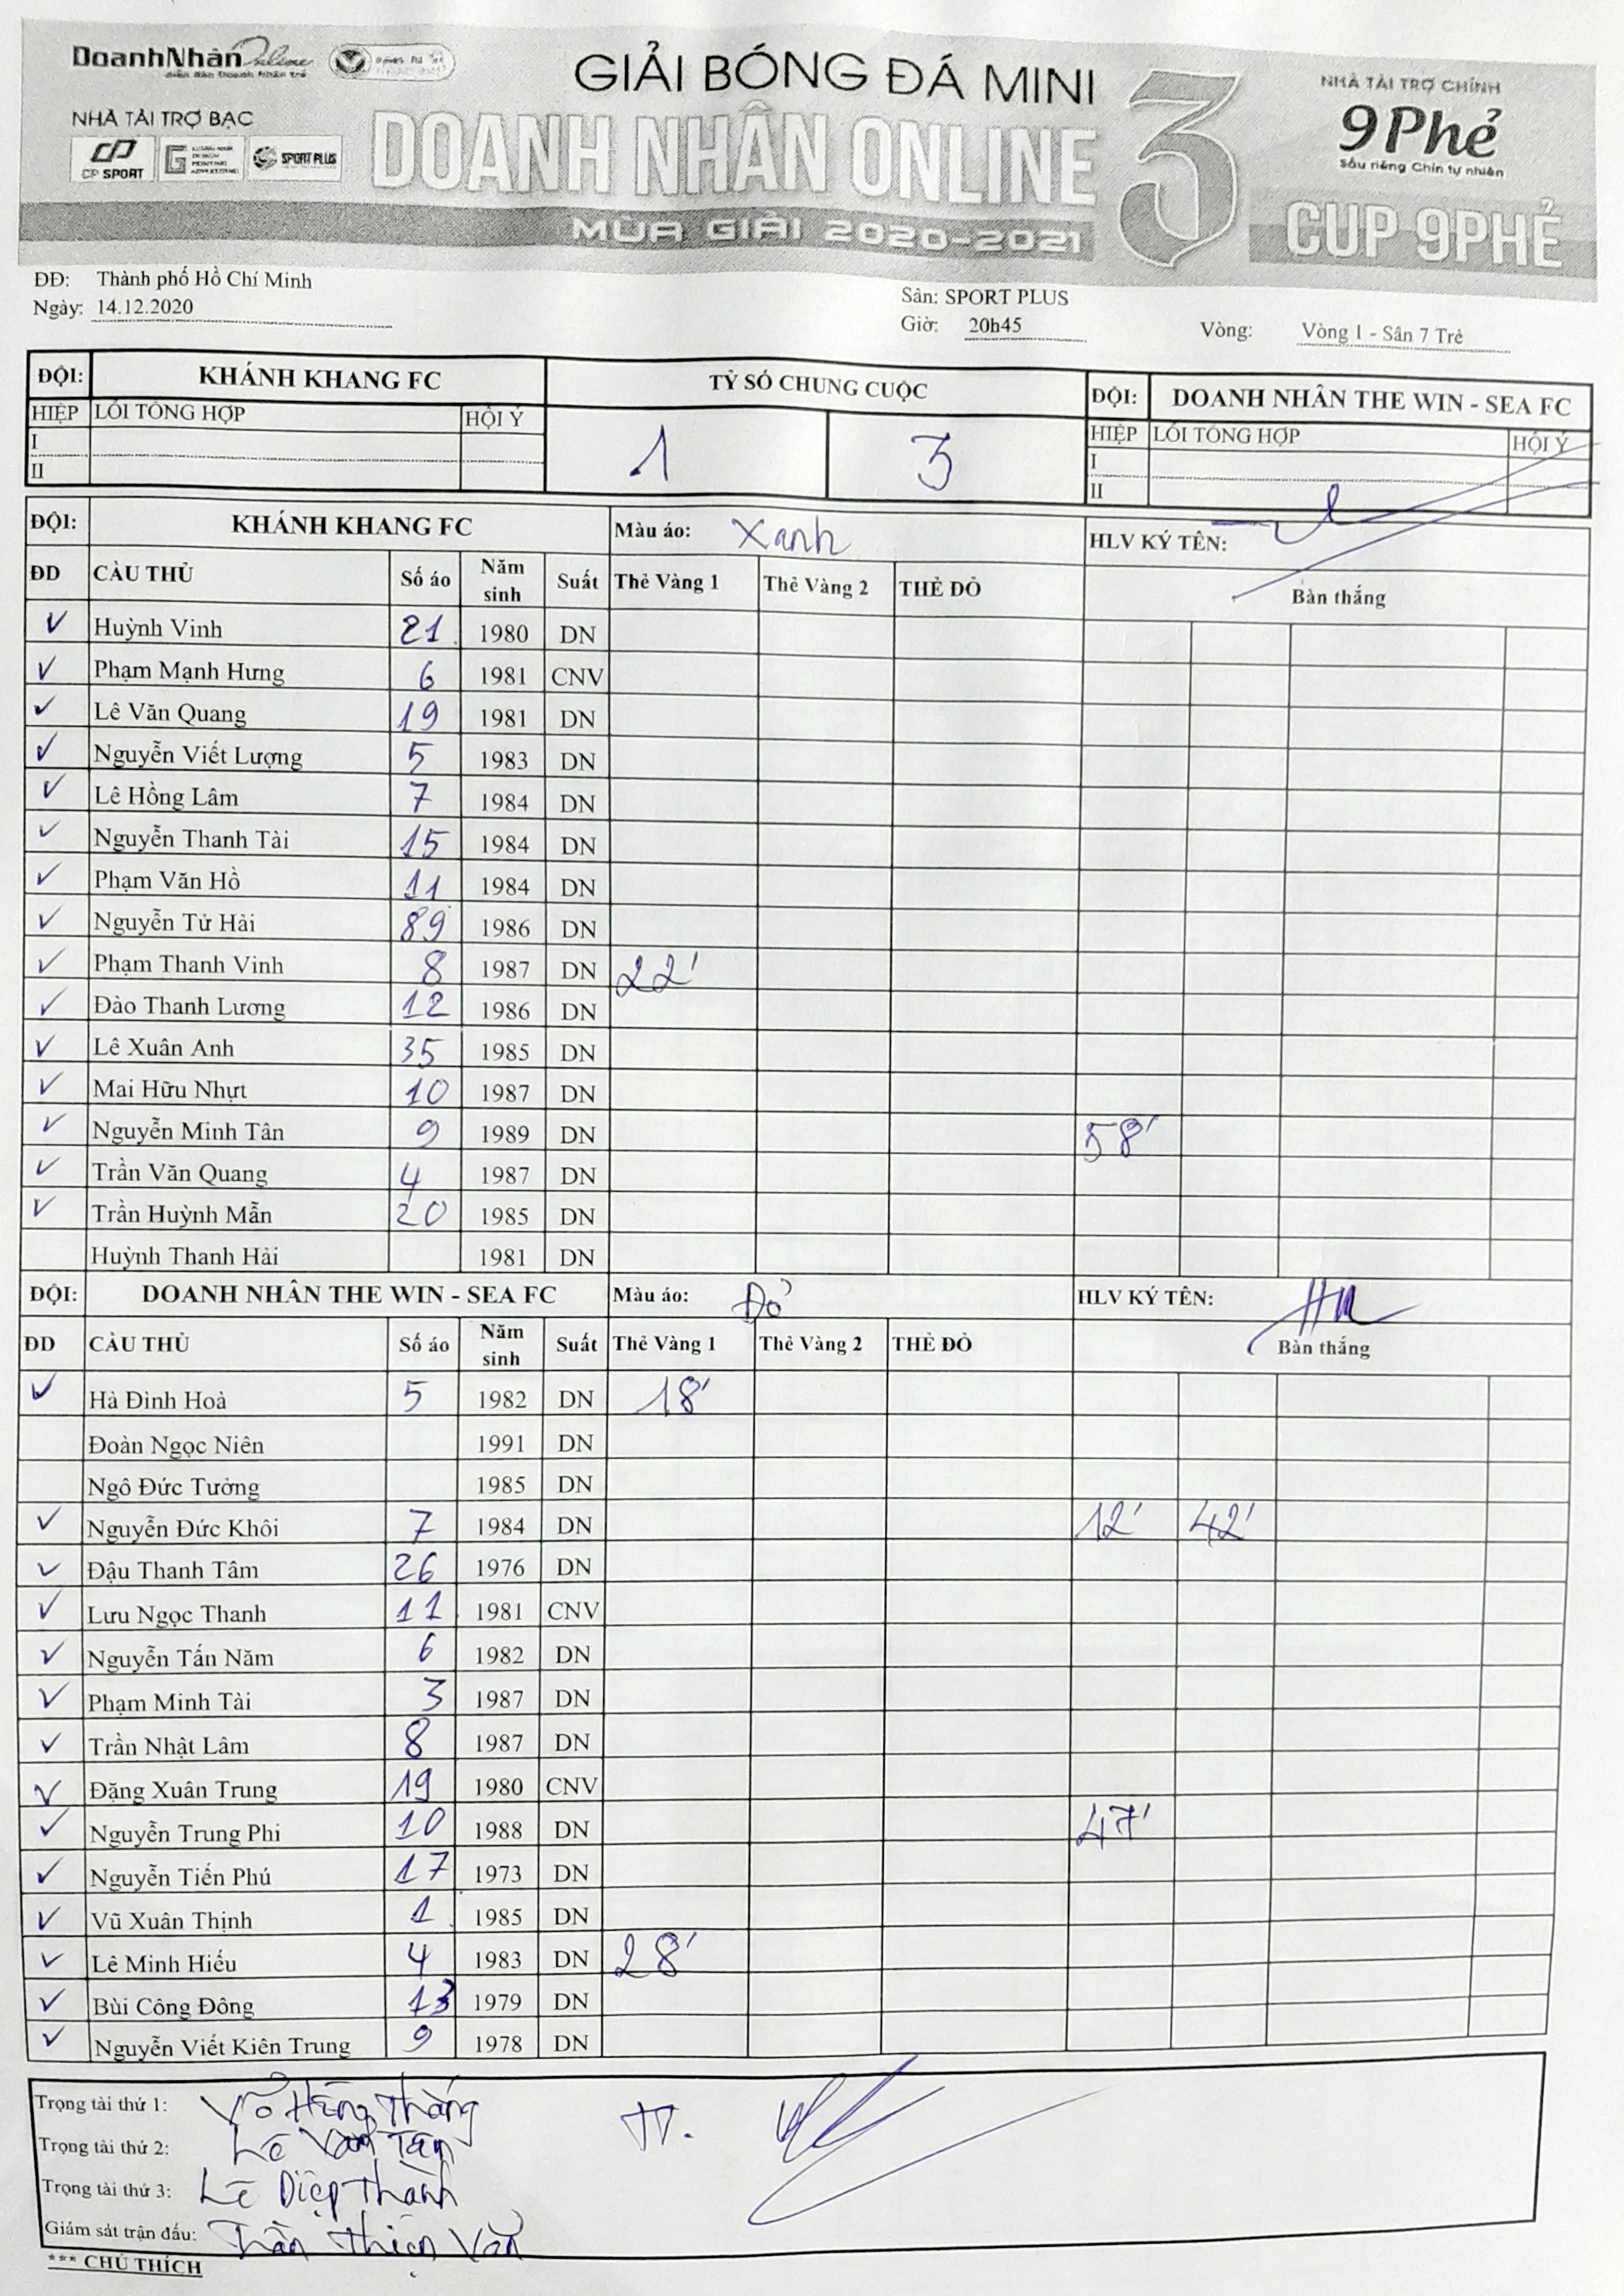 DoanhNhân Online
diễn đàn Doanh Nhân trẻ
GIẢI BÓNG ĐÁ MINI
DOANH NHÂN ONLINE 3
MÙA GIẢI 2020-2021
NHÀ TÀI TRỢ BẠC
CP SPORT
SPORT PLUS
NHÀ TÀI TRỢ CHÍNH
9Phẻ
Sầu riêng Chín tự nhiên
CUP 9PHẺ
ĐĐ: Thành phố Hồ Chí Minh
Ngày: 14.12.2020
Sân: SPORT PLUS
Giờ: 20h45
Vòng: Vòng 1 - Sân 7 Trẻ
ĐỘI: KHÁNH KHANG FC TỶ SỐ CHUNG CUỘC ĐỘI: DOANH NHÂN THE WIN - SEA FC
HIỆP LỖI TỔNG HỢP HỘI Ý 1 3 HIỆP LỖI TỔNG HỢP HỘI Ý
I I
II II
ĐỘI: KHÁNH KHANG FC Màu áo: Xanh HLV KÝ TÊN:
ĐD CẦU THỦ Số áo Năm sinh Suất Thẻ Vàng 1 Thẻ Vàng 2 THẺ ĐỎ Bàn thắng
✓ Huỳnh Vinh 21 1980 DN
✓ Phạm Mạnh Hưng 6 1981 CNV
✓ Lê Văn Quang 19 1981 DN
✓ Nguyễn Viết Lượng 5 1983 DN
✓ Lê Hồng Lâm 7 1984 DN
✓ Nguyễn Thanh Tài 15 1984 DN
✓ Phạm Văn Hồ 11 1984 DN
✓ Nguyễn Tử Hải 89 1986 DN
✓ Phạm Thanh Vinh 8 1987 DN 22'
✓ Đào Thanh Lương 12 1986 DN
✓ Lê Xuân Anh 35 1985 DN
✓ Mai Hữu Nhựt 10 1987 DN
✓ Nguyễn Minh Tân 9 1989 DN 58'
✓ Trần Văn Quang 4 1987 DN
✓ Trần Huỳnh Mẫn 20 1985 DN
Huỳnh Thanh Hải 1981 DN
ĐỘI: DOANH NHÂN THE WIN - SEA FC Màu áo: Đỏ HLV KÝ TÊN:
ĐD CẦU THỦ Số áo Năm sinh Suất Thẻ Vàng 1 Thẻ Vàng 2 THẺ ĐỎ Bàn thắng
✓ Hà Đình Hoà 5 1982 DN 18'
Đoàn Ngọc Niên 1991 DN
Ngô Đức Tưởng 1985 DN
✓ Nguyễn Đức Khôi 7 1984 DN 12' 42'
✓ Đậu Thanh Tâm 26 1976 DN
✓ Lưu Ngọc Thanh 11 1981 CNV
✓ Nguyễn Tấn Năm 6 1982 DN
✓ Phạm Minh Tài 3 1987 DN
✓ Trần Nhật Lâm 8 1987 DN
✓ Đặng Xuân Trung 19 1980 CNV
✓ Nguyễn Trung Phi 10 1988 DN 47'
✓ Nguyễn Tiến Phú 17 1973 DN
✓ Vũ Xuân Thịnh 1 1985 DN
✓ Lê Minh Hiếu 4 1983 DN 28'
✓ Bùi Công Đông 13 1979 DN
✓ Nguyễn Viết Kiên Trung 9 1978 DN
Trọng tài thứ 1: Võ Hồng Thắng
Trọng tài thứ 2: Lê Văn Tân
Trọng tài thứ 3: Lê Diệp Thành
Giám sát trận đấu: Trần Thiện Văn
*** CHÚ THÍCH